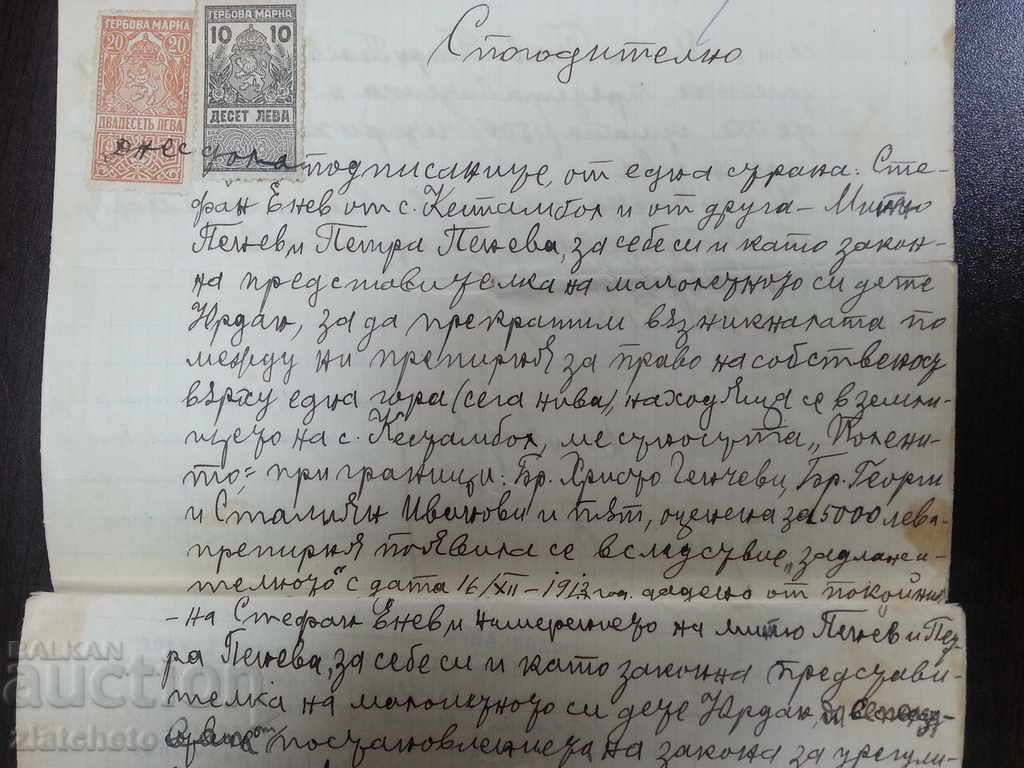 ГЕРБОВА МАРКА
20 20
ДВАДЕСЕТЬ ЛЕВА
ГЕРБОВА МАРКА
10 10
ДЕСЕТ ЛЕВА
Спогодително
подписаните, от една страна: Сте-
фан Енев от с. Кестамбол и от друга – Митю
Пенев и Петра Пенева, за себе си и като закон-
на представителка на малолетното си дете
Юрдан, за да прекратим възникналата по
между ни препирня за право на собственост
върху една гора (сега нива), находяща се в земли-
щето на с. Кестамбол, местността „Колени-
то“ при граници: Бр. Христо Генчеви, Бр. Георги
и Сталиян Иванови и път, оценена за 5000 лева -
препирня появила се вследствие „задлъжи-
телното“ с дата 16/XII – 1912 год. дадено от покойни
-на Стефан Енев и намерението на Митю Пенев и Пет-
ра Пенева, за себе си и като законна представи-
телка на малолетното си дете Юрдан,
постановленията на закона за урегули-
BALKAN
auction
zlatcheto